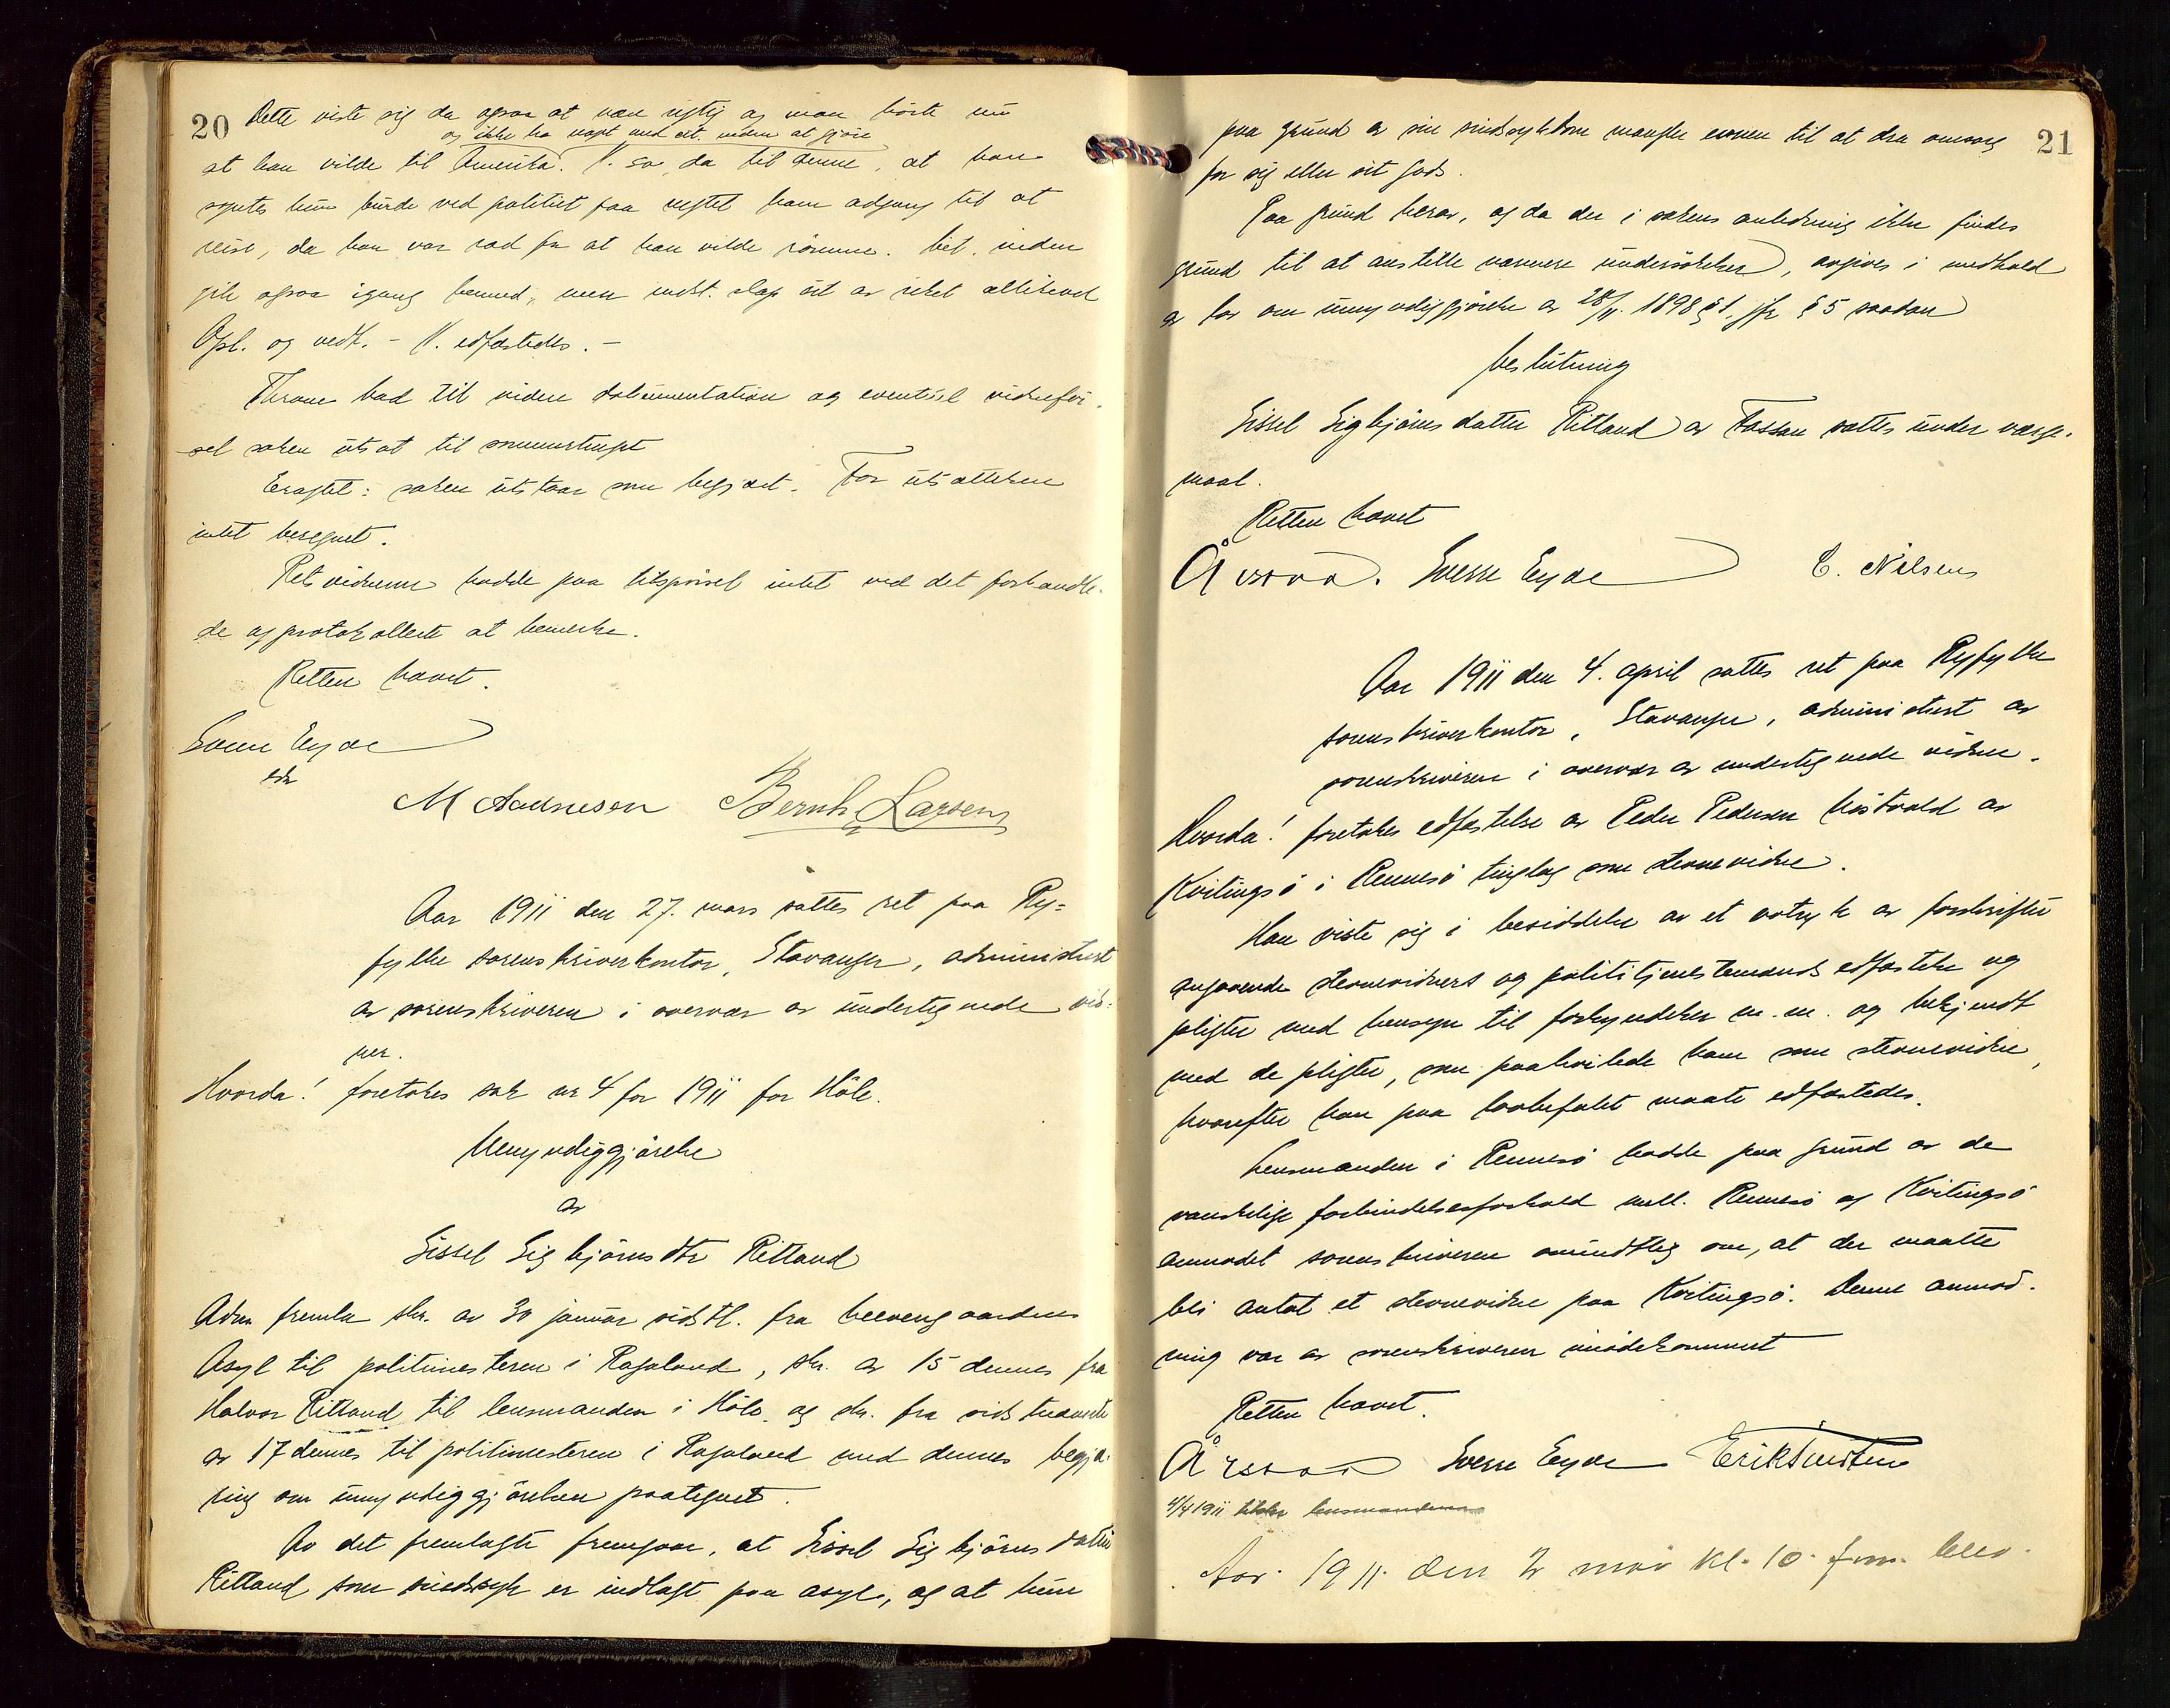 20
Dette viste sig da ogsaa at være rigtig og man hørte nu
og ikke ha noget med at uden at gjøre
at han vilde til Amerika. V. sa da til denne, at han
syntes hun burde ved politiet faa negtet ham adgang til at
reise, da han var ræd for at han vilde rømme. Det. inden
gik ogsaa igang hermed, men indst. slap ut av riket allikevel
Opl. og vedt. - V. edfæstedes. -
Throne bad til videre dokumentation og eventuel vidneför-
sel saken utsat til sommertinget
Eragtet: saken utstaar som begjært. For utsættelsen
intet beregnet.
Retsvidnerne hadde paa tilspørsel intet ved det forhandle-
de og protokollerte at bemerke.
Retten hævet.
Sverre Eyde
edr
M Aadnesen Bernh. Larsen
Aar 1911 den 27. mars sattes ret paa Ry=
fylke sorenskriverkontor, Stavanger, administrert
av sorenskriveren i overvær av undertegnede vid=
ner.
Hvorda! foretokes sak nr 4 for 1911 for Höle.
Umyndiggjörelse
av
Sissel Sigbjörnsdtr Ritland
Adm fremla skr. av 30 januar sidstl. fra Eevengaardens
Asyl til politimesteren i Rogaland, skr. av 15 dennes fra
Halvor Ritland til lensmanden i Höle og skr. fra sidstnævnte
av 17 dennes til politimesteren i Rogaland med dennes begjæ-
ring om umyndiggjörelsen paategnet.
Av det fremlagte fremgaar, at Sissel Sigbjörnsdatter
Ritland som sindssyk er indlagt paa asyl, og at hun
21
paa grund av sin sindssykdom mangler evnen til at dra omsorg
for sig eller sit gods.
Paa grund herav, og da der i sakens anledning ikke findes
grund til at anstille nærmere undersökelser, avgives i medhold
av lov om umyndiggjörelse av 28/11 1898 § 1, jfr § 5 saadan
beslutning
Sissel Sigbjörnsdatter Ritland av Fossan sættes under verge-
maal.
Retten hævet
Sverre Eyde E. Nilsen
Aar 1911 den 4. april sattes ret paa Ryfylke
sorenskriverkontor, Stavanger, administrert av
sorenskriveren i overvær av undertegnede vidner.
Hvorda! foretokes edfæstelse av Peder Pedersen av
Kvitingsö i Rennesö tinglag som stevnevidne.
Han viste sig i besiddelse av et avtryk av forskrifter
angaaende stevnevidners og polititjenestemænds edfæstelse og
pligter med hensyn til forkyndelser m.m. og bekjendt
med de pligter, som paahvilede ham som stevnevidne,
hvorefter han paa lovbefalet maate edfæstedes.
Lensmanden i Rennesö hadde paa grund av de
vanskelige forbindelsesforhold mell. Rennesö og Kvitingsö
anmodet sorenskriveren mundtlig om, at der maatte
bli antat et stevnevidne paa Kvitingsö. Denne anmod-
ning var av sorenskriveren imödekommet
Retten hævet.
Sverre Eyde
4/4 1911 lensmanden
Aar 1911 den 2 mai kl. 10 fm. blev